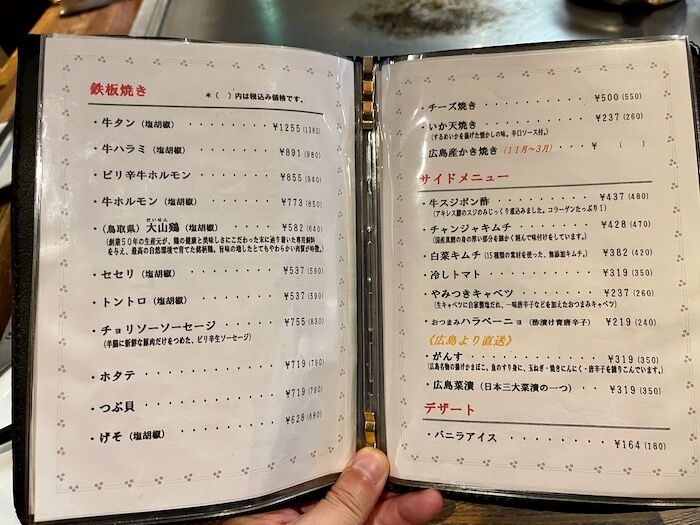 鉄板焼き
＊( )内は税込み価格です。
・牛タン（塩胡椒）・・・・・・・・¥1255(1380)
・牛ハラミ（塩胡椒）・・・・・・・・¥891(980)
・ピリ辛牛ホルモン・・・・・・・・¥855(940)
・牛ホルモン（塩胡椒）・・・・・・・¥773(850)
だいせん
・（鳥取県）大山鶏（塩胡椒）・・・・・¥582(640)
（創業５０年の生産元が、鶏の健康と美味しさにこだわった末に辿り着いた専用飼料
を与え、最高の自然環境で育てた銘柄鶏。旨味の増したとてもやわらかい肉質が特徴。）
・セセリ（塩胡椒）・・・・・・・・¥537(590)
・トントロ（塩胡椒）・・・・・・・・¥537(590)
・チョリソーソーセージ・・・・・・¥755(830)
（羊腸に新鮮な豚肉だけをつめた、ピリ辛生ソーセージ）
・ホタテ・・・・・・・・・・・・¥719(790)
・つぶ貝・・・・・・・・・・・・¥719(790)
・げそ（塩胡椒）・・・・・・・・・¥628(690)
・チーズ焼き・・・・・・・・・・¥500(550)
・いか天焼き・・・・・・・・・・¥237(260)
（するめいかを揚げた懐かしの味。辛口ソース付。）
・広島産かき焼き（11月〜3月）・・・¥ ( )
サイドメニュー
・牛スジポン酢・・・・・・・・・¥437(480)
（アキレス腱のスジのみじっくり煮込みました。コラーゲンたっぷり！）
・チャンジャキムチ・・・・・・・・¥428(470)
（国産真鱈の身の厚い部分を細かく刻んで味付けをしています。）
・白菜キムチ（15種類の素材を使った、無添加キムチ。）・¥382(420)
・冷しトマト・・・・・・・・・・¥319(350)
・やみつきキャベツ・・・・・・・・¥237(260)
（生キャベツに自家製塩だれ、一味唐辛子などを加えたおつまみキャベツ）
・おつまみハラペーニョ（酢漬け青唐辛子）・¥219(240)
《広島より直送》
・がんす・・・・・・・・・・・・¥319(350)
（広島名物の揚げかまぼこ。魚のすり身に、玉ねぎ・焼きにんにく・唐辛子を練りこんでいます。）
・広島菜漬（日本三大菜漬の一つ）・・¥319(350)
デザート
・バニラアイス・・・・・・・・・¥164(180)